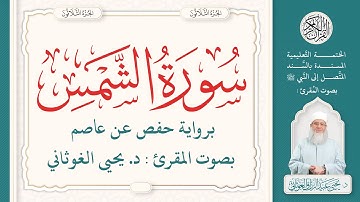 الجزء الثلاثون
الجزء الثلاثون
سورة الشمس
برواية حفص عن عاصم
بصوت المقرئ : د. يحيى الغوثاني
القرآن الكريم
الختمة التعليمية
المسندة بالسند
المتصل إلى النبي ﷺ
بصوت المقرئ :
د. يحيى عبد الرزاق الغوثاني